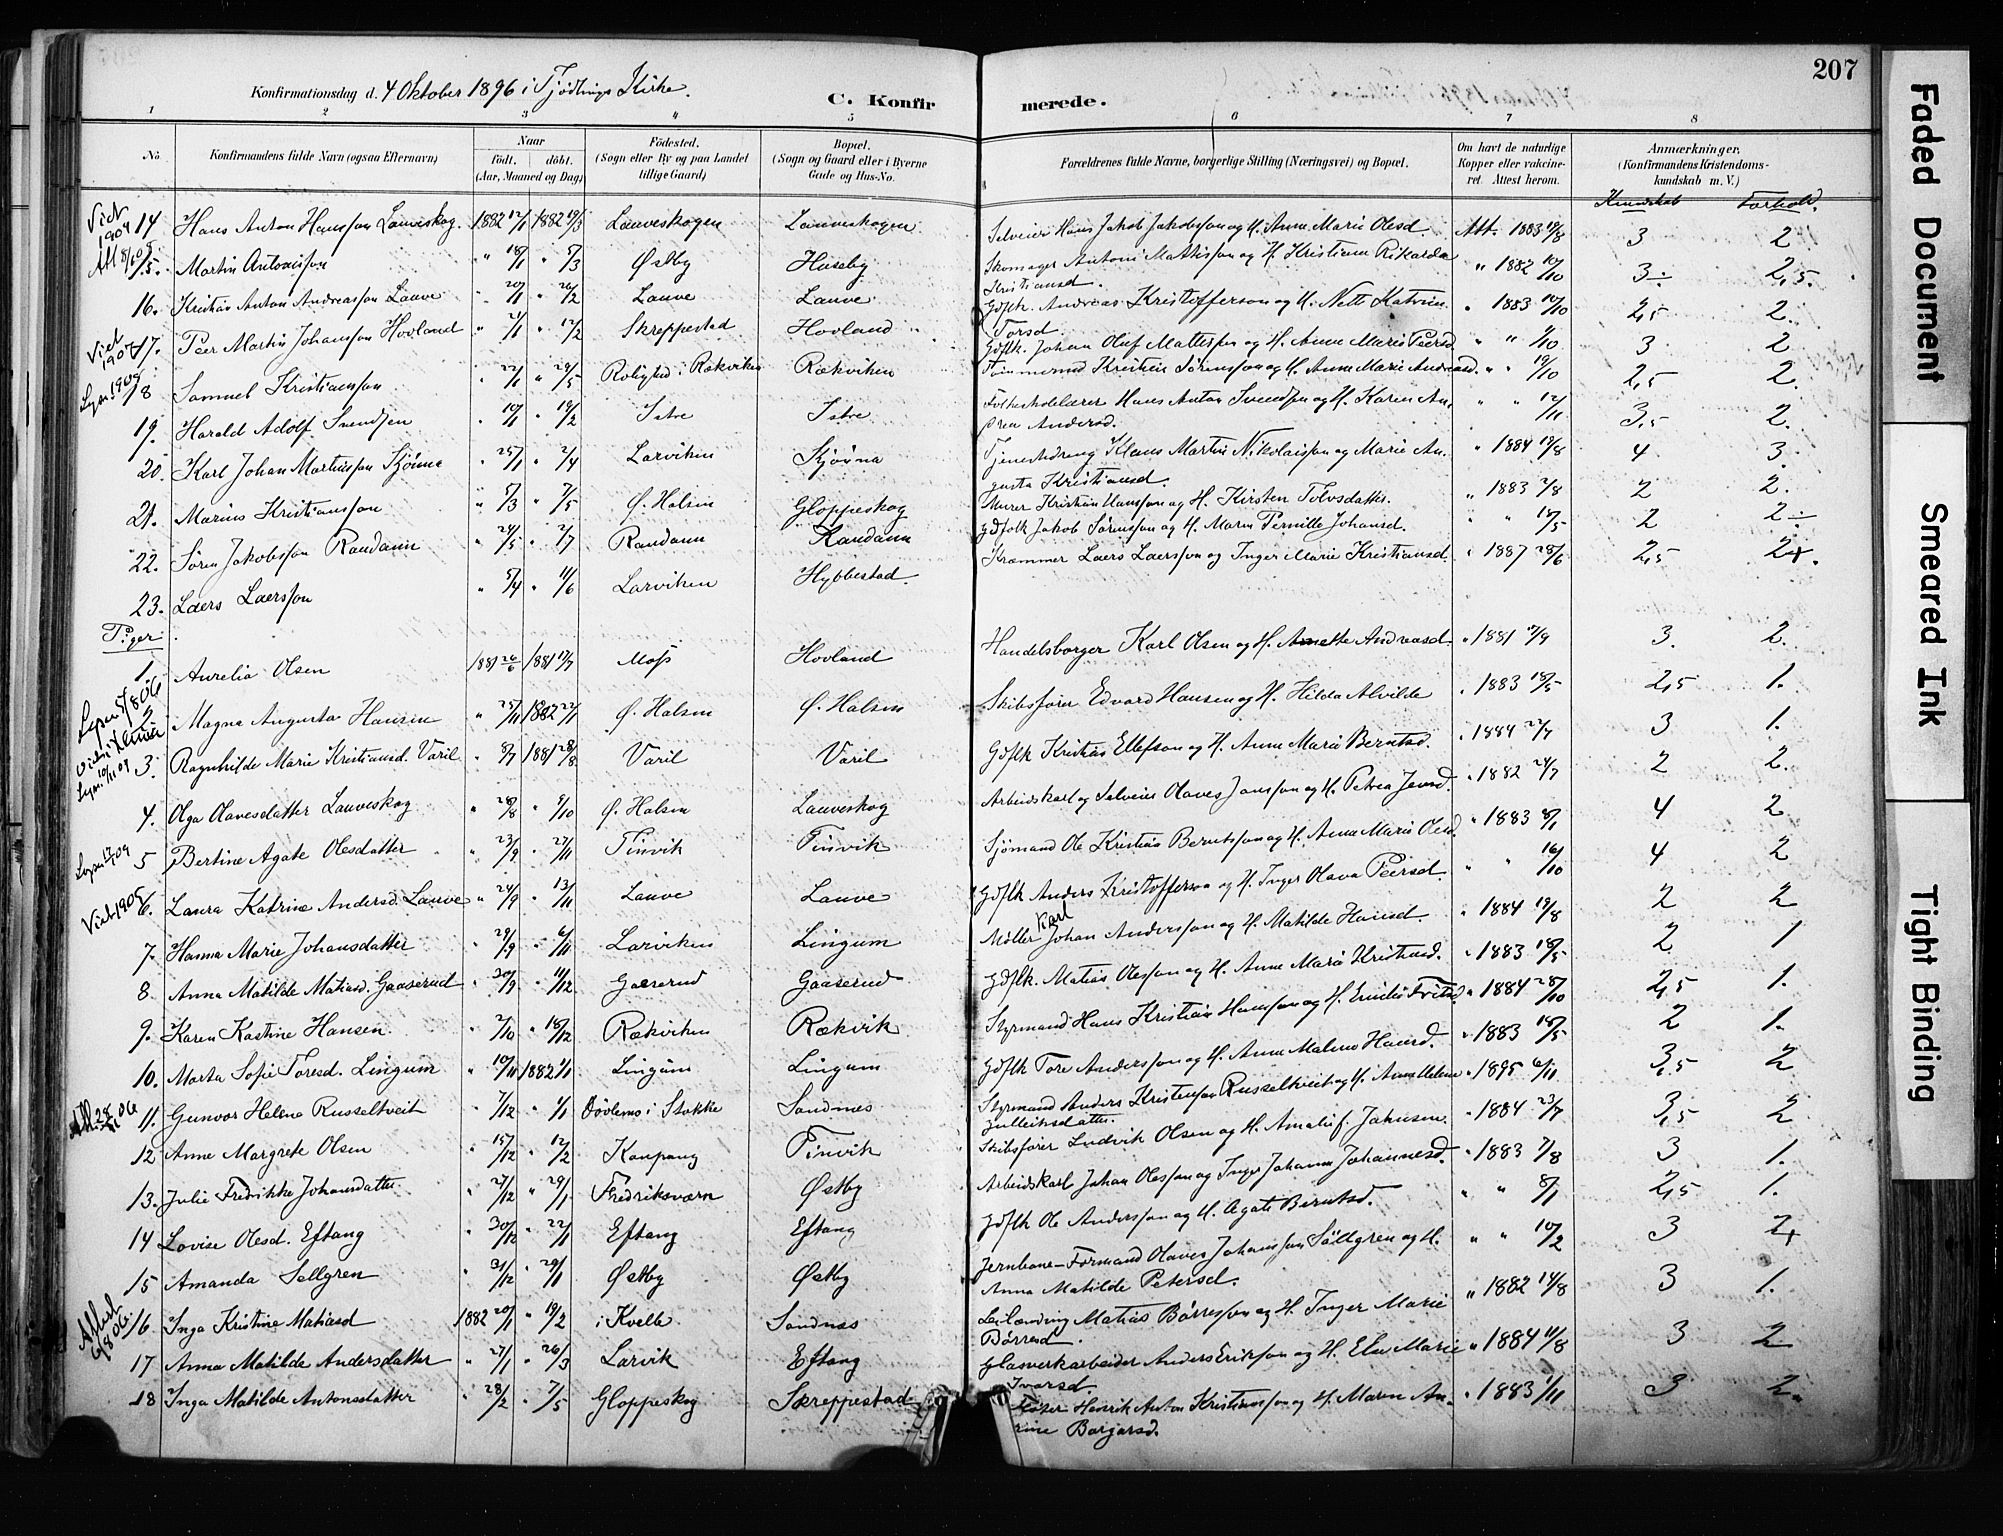 207
Konfirmationsdag d. 4 Oktober 1896 i Tjødlings Kirke.
C. Konfirmerede.
1 2 3 4 5 6 7 8
No. Konfirmandens fulde Navn (ogsaa Efternavn) Naar født. døbt. (Aar, Maaned og Dag) Fødested. (Sogn eller By og paa Landet tillige Gaard) Bopæl. (Sogn og Gaard eller i Byerne Gade og Hus-No. Forældrenes fulde Navne, borgerlige Stilling (Næringsvei) og Bopæl. Om havt de naturlige Kopper eller vakcineret. Attest herom. Anmærkninger, (Konfirmandens Kristendomskundskab m. V.)
Kundskab Forhold.
Viet 1904 14 Hans Anton Hansson Lauveskog. 1882 12/1 1882 19/3 Lauveskogen Lauveskogen Selveier Hans Jakob Jakobsson og H. Anne Marie Olesd Att. 1883 11/8 3 2
15. Martin Antonisson " 18/1 " 5/3 Østby Huseby Skomager Antoni Mattisson og H. Kristiane Rikarda Kristiansd. " 1882 10/10 3÷ 2,5.
16. Kristian Anton Andreasson Lauve " 20/1 " 26/2 Lauve Lauve Gdflk. Andreas Kristofferson og H. Nette Katrine Torsd " 1883 10/10 2,5 2.
Viet 1907 17. Peer Martin Johansson Hovland " 2/1 " 12/2 Skreppestad Hovland Gdflk. Johan Oluf Mattesson og H. Anne Marie Peersd " " 1/10 3 2
Lysn. 1909 18 Samuel Kristiansson " 22/1 " 29/5 Rolighed i Rækviken Rækviken Tømmermd Kristian Sørensson og H. Anne Marie Andreasd. " " 19/10 2,5 2.
19. Harald Adolf Svendsen " 10/1 " 19/2 Istre Istre Folkeskolelærer Hans Anton Svendsen og H. Karen Andrea Andersd. " " 12/11 3,5 2.
20. Karl Johan Martinsson Skjönna " 25/1 " 2/4 Larviken Skjövna Tjenestedreng Klaus Martin Nikolaisson og Marie Augusta Kristiansd. " 1884 19/8 4 3.
21. Marius Kristiansson " 5/3 " 7/5 Ø. Halsen Gloppeskog Murer Kristian Hansson og H. Kirsten Tolvsdatter. " 1883 7/8 2 2.
22. Søren Jakobsson Raudann " 24/5 " 2/7 Raudann Raudann Gdfolk Jakob Sørensson og H. Maren Pernille Johansd. " " 18/5 2 2÷
23. Laers Laersson " 5/4 " 11/6 Larviken Hybbestad. Kræmmer Laers Laersson og Inger Marie Kristiansd. " 1887 28/6 2,5 2+.
Piger.
1. Aurelia Olsen 1881 26/6 1881 17/7 Moss Hovland Handelsborger Karl Olsen og H. Anette Andreasd. " 1881 17/9 3. 2.
2. Magna Augusta Hansen " 25/11 1882 22/1 Ø. Halsen Ø. Halsen Skibsfører Edvard Hansen og H. Hilda Alvilde " 1883 18/5 2,5 1.
3. Ragnhilde Marie Kristiansd. Varil " 8/7 1881 28/8 Varil Varil Gdflk Kristian Ellefson og H. Anne Marie Berntsd. " 1884 22/7 3 1.
4. Olga Olavesdatter Lauveskog " 28/8 " 9/10 Ø. Halsen Lauveskog Arbeidskarl og Selveier Olaves Jansson og H. Petrea Jensd. " 1882 24/7 2 2.
5 Bertine Agate Olesdatter " 23/9 " 27/11 Tinvik Tinvik Sjømand Ole Kristian Berntsson og H. Anne Marie Olesd. " 1883 8/1 4 2
Viet 1905 6. Laura Katrine Andersd. Lauve " 24/9 " 13/11 Lauve Lauve Gdflk Anders Kristofferson og H. Inger Olava Peersd. " " 16/10 4 2
7. Hanna Marie Johansdatter " 29/9 " 6/11 Larviken Lingum Møller Karl Johan Andersson og H. Matilde Hansd. " 1884 19/8 2 2
8. Anna Matilde Matiasd. Gaaserud " 30/9 " 11/12 Gaaserud Gaaserud Gdflk. Matias Olesson og H. Anne Marie Kristiansd. " 1883 18/5 2 1
9. Karen Kastine Hansen. " 2/10 " 18/12 Rækviken Rækvik Styrmand Hans Kristian Hansson og H. Emilie Fritsd " 1884 28/10 2,5 1.
10. Marta Sofie Toresd. Lingum " 10/11 1882 1/1 Lingum Lingum Gdflk Tore Andersson og H. Anne Malene Hansd. " 1883 18/5 2 1.
11. Gunvor Helene Russeltveit " 7/12 " 1/1 Døvlemo i Stokke Sandnes Styrmand Anders Kristenson Russeltveit og H. Anne Helene Gulleiksdatter. " 1895 6/11 3,5 2
12 Anne Margrete Olsen " 15/12 " 12/2 Kaupang Tinvik Skibsfører Ludvik Olsen og H. Amalie f. Jaknsen " 1884 23/7 3,5 2
13. Julie Fredrikke Johansdatter " 27/12 " 29/1 Fredriksværn Østby Arbeidskarl Johan Olesson og Inger Johanne Johannesd. " 1883 7/8 3 1.
14 Lovise Olesd. Eftang " 30/12 " 22/1 Eftang Eftang Gdflk Ole Andersson og H. Agate Berntsd. " " 8/1 2,5 1.
15 Amanda Sellgren " 31/12 " 29/1 Østby Østby Jernbane-Formand Olaves Johansson Sällgren og H. Anna Matilde Petersd. " " 10/2 3 2+
16. Inga Kristine Matiasd 1882 20/1 " 19/2 i Kvelle Sandnes Leilænding Matias Børresson og H. Inger Marie Børresd. " 1882 14/8 3 1.
17 Anna Matilde Andersdatter " 27/1 " 26/3 Larvik Eftang Glasverkarbeider Anders Erikson og H. Elen Marie Ivarsd. " 1884 11/8 3 2
18 Inga Matilde Antonsdatter " 28/2 " 7/5 Gloppeskog Skreppestad Fløter Henrik Anton Kristiansson og H. Maren Anrine Borgarsd. " 1883 1/11 3 2.
Faded Document
Smeared Ink
Tight Binding